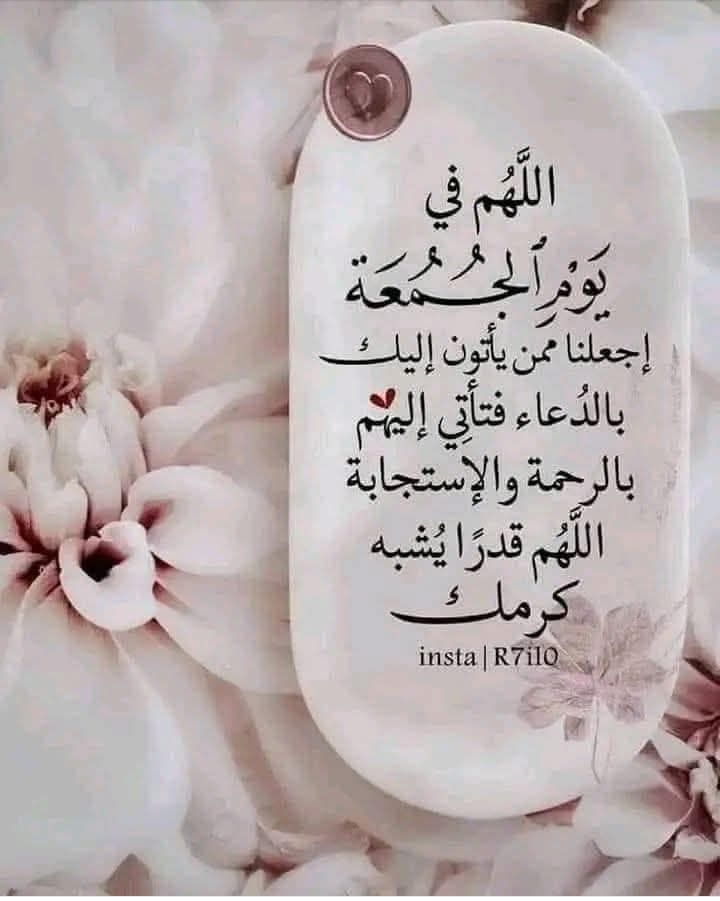 اللَّهُم في
يَوْمِ ٱلجُـمُعَة
إجعلنا ممن يأتون إليك
بالدُعاء فتأتِي إليهم
بالرحمة والإستجابة
اللَّهُم قدرًا يُشبه
كرمك
insta|R7il0